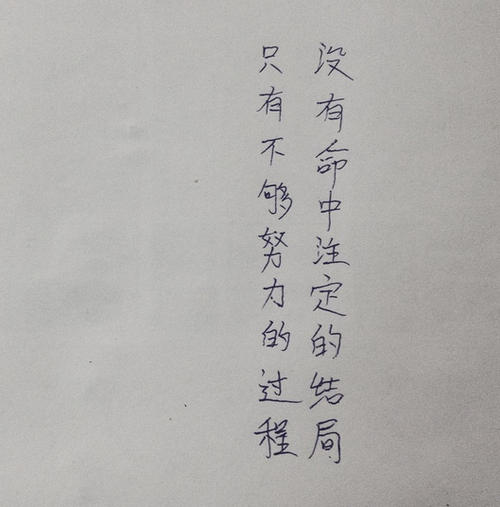 没有命中注定的结局
只有不够努力的过程